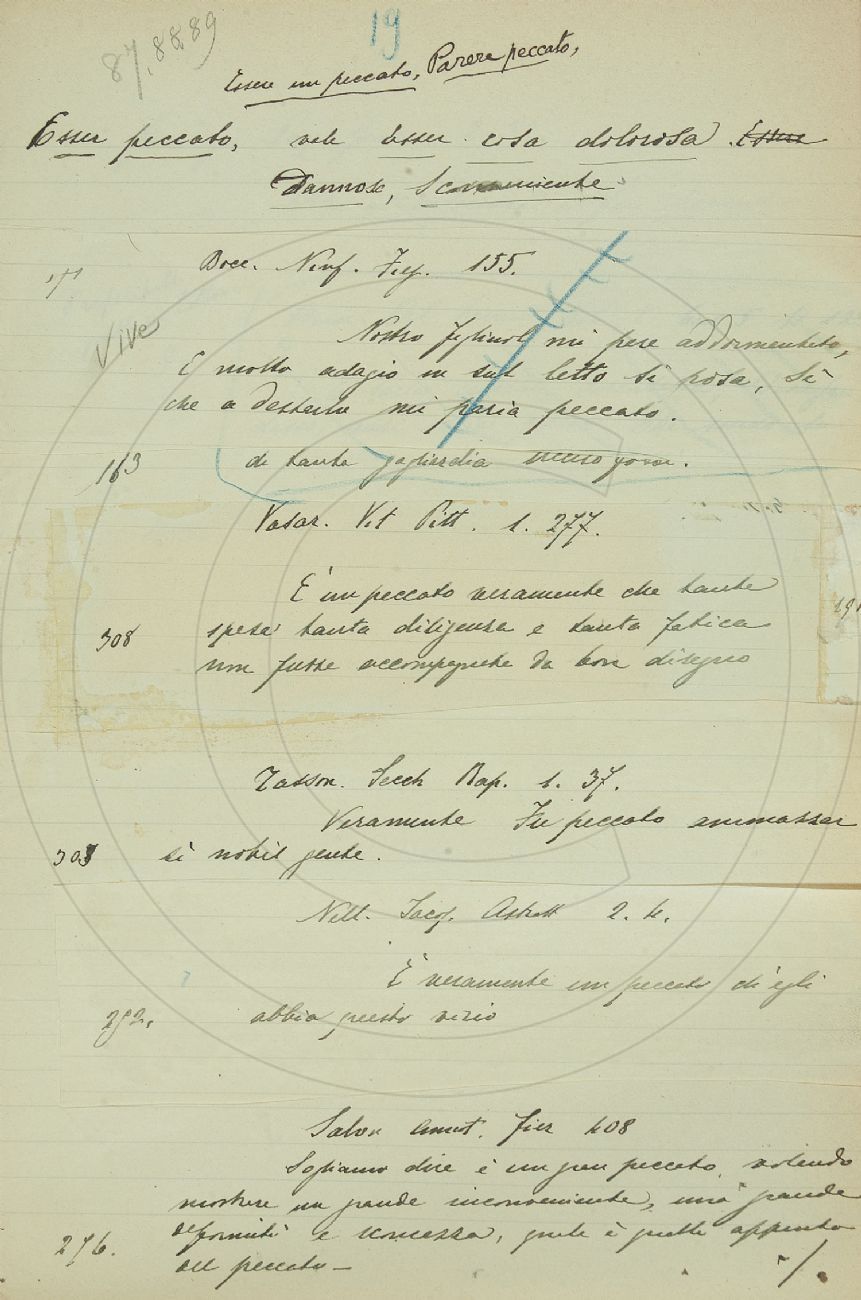 19
87, 88 89
Essere un peccato, Parere peccato,
Esser peccato, vale Esser cosa dolorosa. Essere
Dannosa, Sconveniente
Bocc. Ninf. Fies. 155.
Vive
Nostro figliuol mi pare addormentato,
E molto adagio in sul letto si posa, Sì
che a destarlo mi paria peccato.
163
di tanta gagliardia meno
Vasar. Vit Pitt. 1. 277.
E' un peccato veramente che tanta
308
spesa tanta diligenza e tanta fatica
non fusse accompagnata da bon disegno
Tasson. Secch Rap. 1. 37.
Veramente Fu peccato ammazzar
303
sì nobil gente.
Nell. Iacop. 2. 4.
È veramente un peccato ch'egli
292.
abbia questo vizio
Salvin annot. Fier 408
Sogliamo dire è un gran peccato, volendo
mostrare un grande inconveniente, una grande
deformità e sconcezza, quale è quella appunto
276.
del peccato —